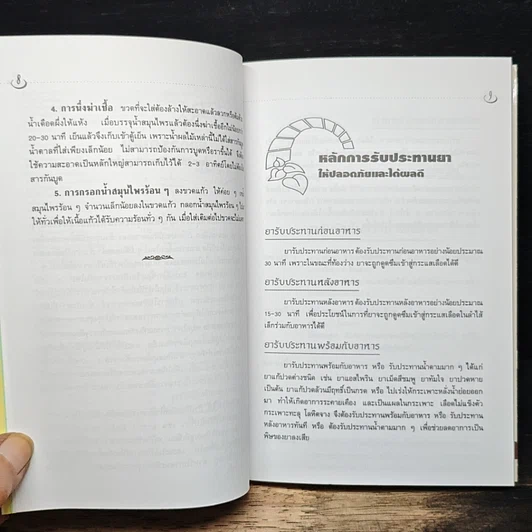 ๘
4. การนึ่งฆ่าเชื้อ ขวดที่จะใส่ต้องล้างให้สะอาดแล้วลวกหรือต้มใน
น้ำเดือดผึ่งให้แห้ง เมื่อบรรจุน้ำสมุนไพรแล้วต้องนึ่งฆ่าเชื้ออีกไม่น้อยกว่า
20-30 นาที เย็นแล้วจึงเก็บเข้าตู้เย็น เพราะน้ำผลไม้เหล่านี้ไม่ได้ใส่สารกันบูด
น้ำตาลที่ใส่เพียงเล็กน้อย ไม่สามารถป้องกันการบูดหรือราขึ้นได้
ใช้ความสะอาดเป็นหลักใหญ่สามารถเก็บไว้ได้ 2-3 อาทิตย์โดยไม่ต้อง
สารกันบูด
5. การกรอกน้ำสมุนไพรร้อน ๆ ลงขวดแก้ว ให้ค่อย ๆ
สมุนไพรร้อน ๆ จำนวนเล็กน้อยลงในขวดแก้ว กลอกน้ำสมุนไพรร้อน ๆ
ให้ทั่วเพื่อให้เนื้อแก้วได้รับความร้อนทั่ว ๆ กัน เมื่อใส่เติมต่อไปขวดจะไม่แตก
๙
หลักการรับประทานยา
ให้ปลอดภัยและได้ผลดี
ยารับประทานก่อนอาหาร
ยารับประทานก่อนอาหาร ต้องรับประทานก่อนอาหารอย่างน้อยประมาณ
30 นาที เพราะในขณะที่ท้องว่าง ยาจะถูกดูดซึมเข้าสู่กระแสเลือดได้ดี
ยารับประทานหลังอาหาร
ยารับประทานหลังอาหาร ต้องรับประทานหลังอาหารอย่างน้อยประมาณ
15-30 นาที เพื่อประโยชน์ในการที่ยาจะถูกดูดซึมเข้าสู่กระแสเลือดในลำไส้
เล็กร่วมกับอาหารได้ดี
ยารับประทานพร้อมกับอาหาร
ยารับประทานพร้อมกับอาหาร หรือ รับประทานน้ำตามมาก ๆ ได้แก่
ยาแก้ปวดต่างชนิด เช่น ยาแอสไพริน ยาเม็ดสีชมพู ยาทัมใจ ยาปวดหาย
เป็นต้น ยาแก้ปวดล้วนมีฤทธิ์เป็นกรด หรือ ไปเร่งให้กระเพาะหลั่งน้ำย่อยออก
มา ทำให้เกิดอาการระคายเคือง และเป็นแผลในกระเพาะ เลือดไม่แข็งตัว
กระเพาะทะลุ โลหิตจาง จึงต้องรับประทานพร้อมกับอาหาร หรือ รับประทาน
หลังอาหารทันที หรือ ต้องรับประทานน้ำตามมาก ๆ เพื่อช่วยลดอาการเป็น
พิษของยาลงเสีย